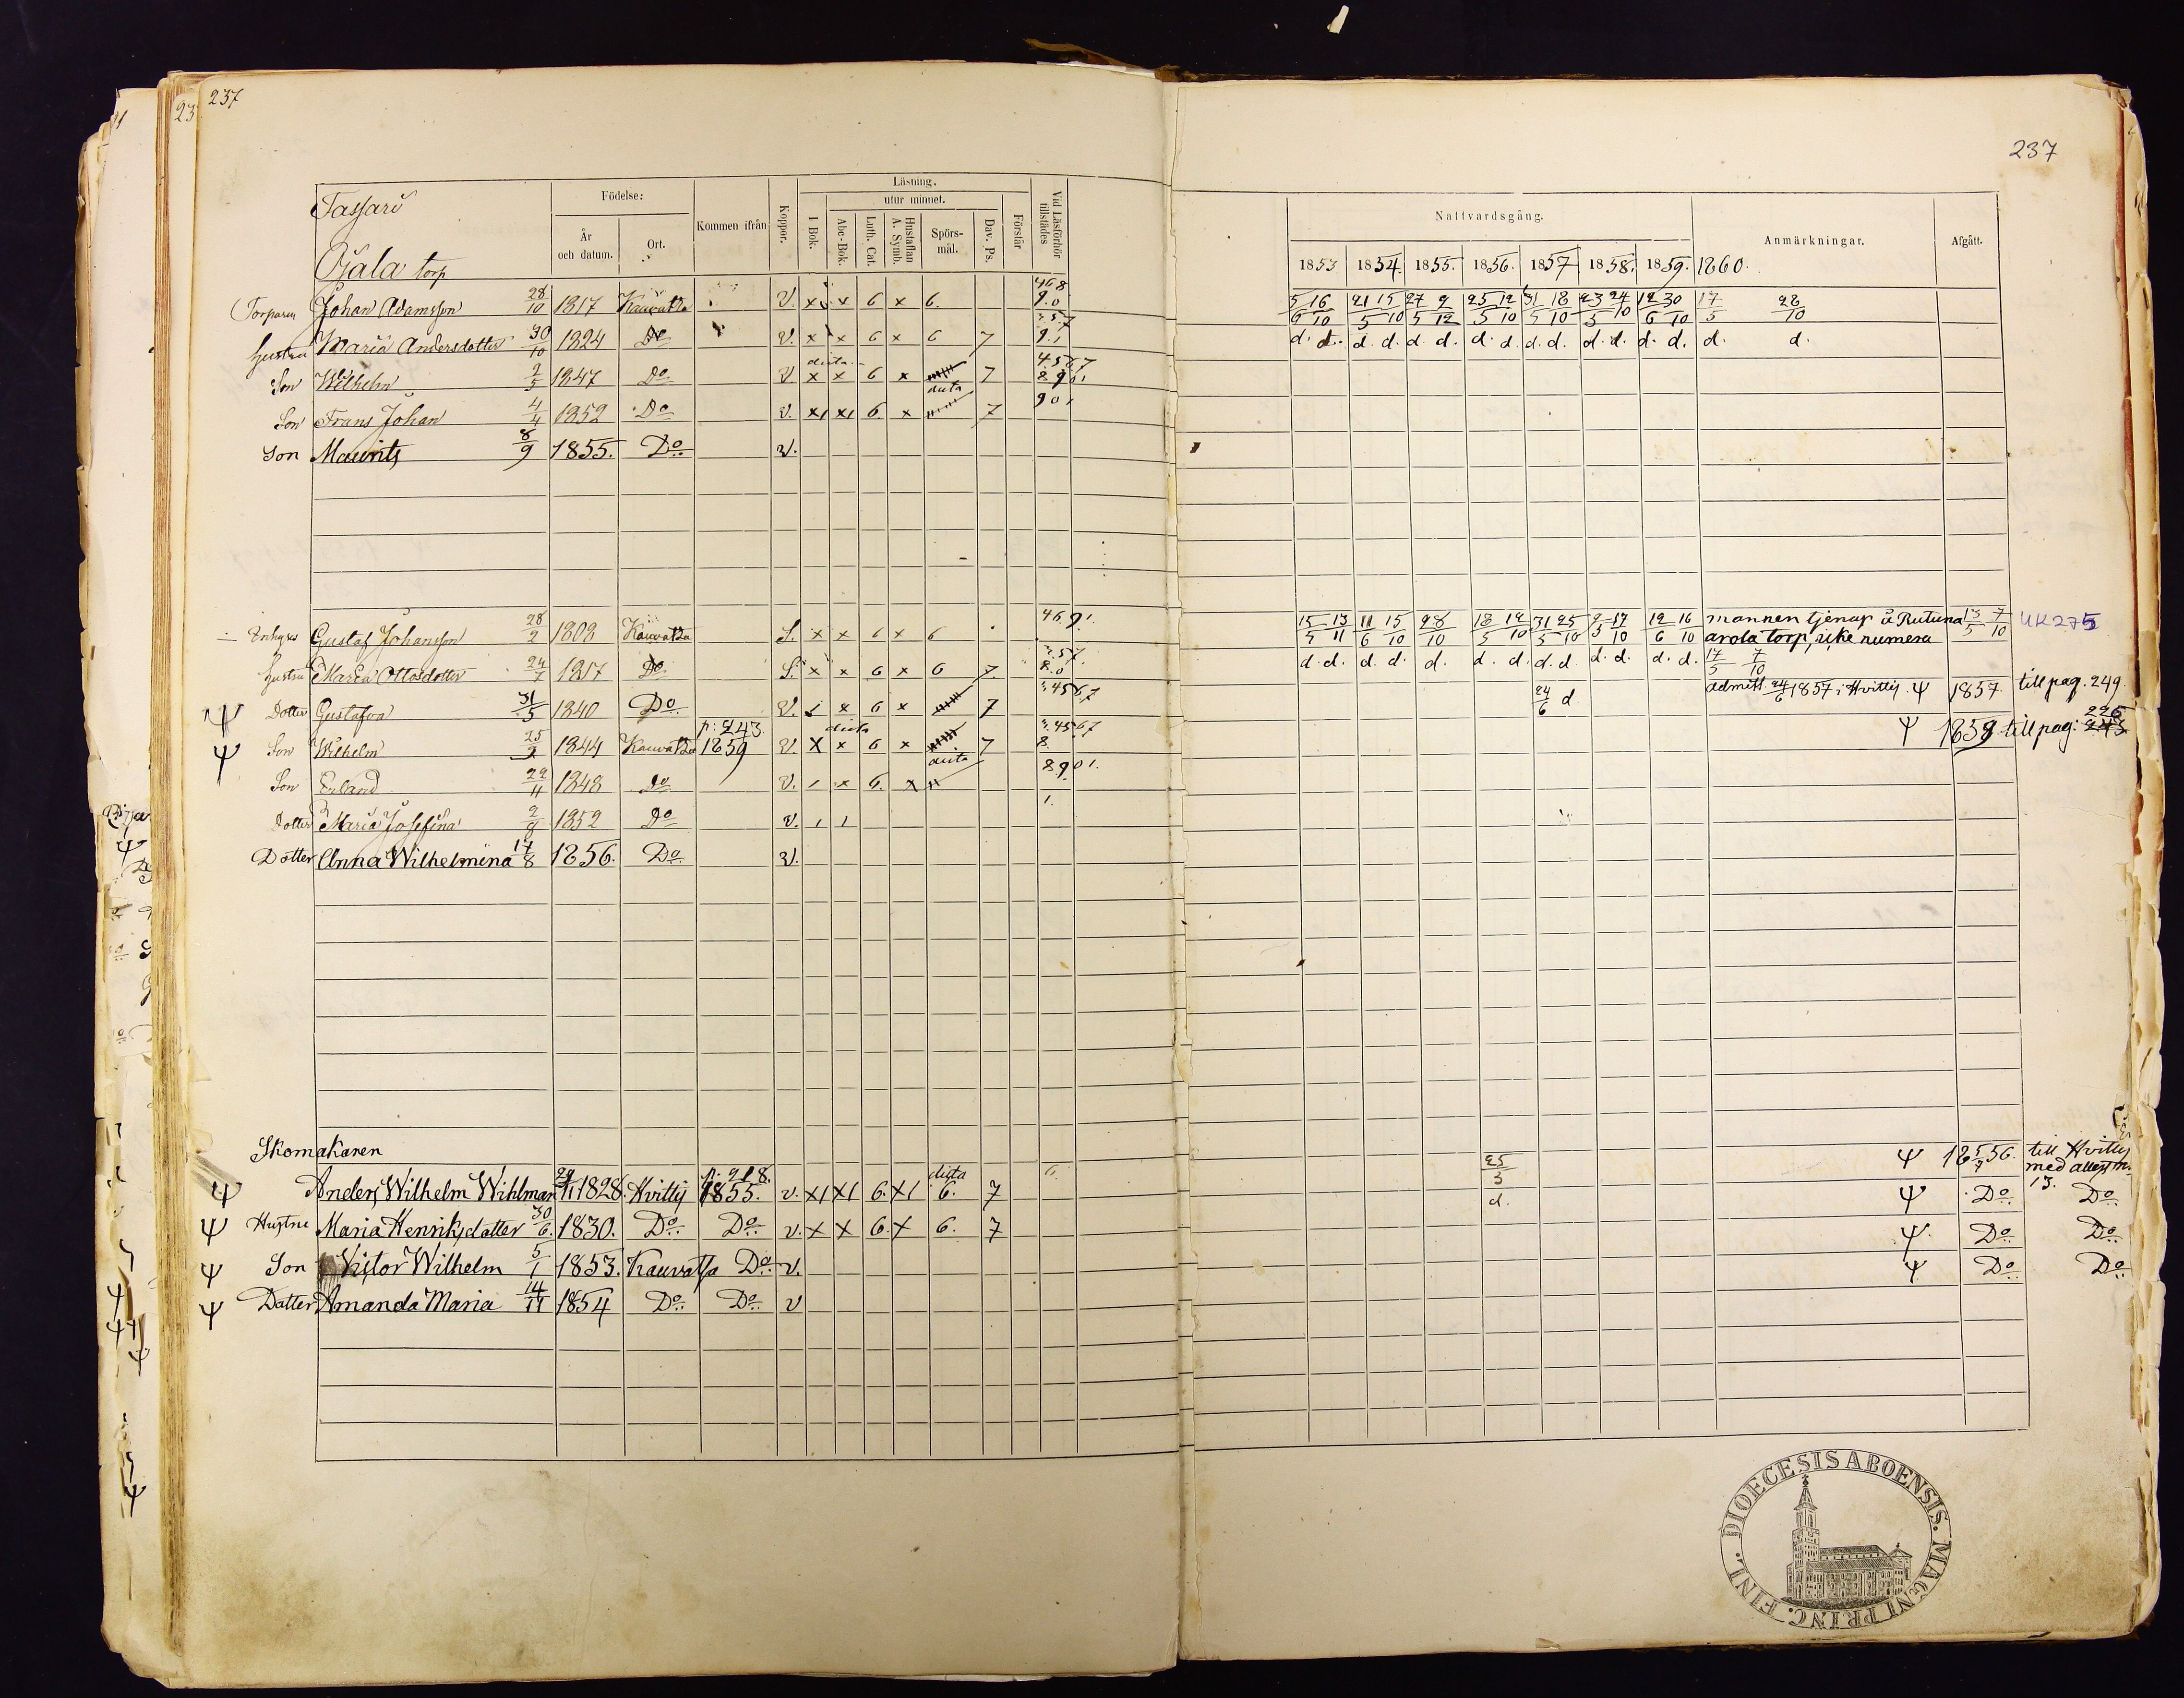 237
237
Födelse:
År och datum.
Ort.
Kommen ifrån
Koppor.
Läsning.
utur minnet.
I Bok.
Abc-Bok.
Luth. Cat.
Hustaflan A. Symb.
Spörs-mål.
Dav. Ps.
Förstår
Vid Läsförhör tillstädes
Nattvardsgång.
1853 1854. 1855. 1856. 1857 1858. 1859. 1860.
Anmärkningar.
Afgått.
Ojala torp
Torparen Johan Adamsson 28/10 1817 Kauvatsa V. x x 6 x 6. 468 9.0 5/6 16/10 21/5 15/10 27/5 9/12 25/5 12/10 31/5 18/10 23/5 24/10 12/6 30/10 17/5 28/10
Hustru Maria Andersdotter 30/10 1824 Do V. x x 6 x 6 7 d. d. d. d. d. d. d. d. d. d. d. d. d. d. d. d.
Son Wilhelm 2/5 1847 Do V x x 6 x 7 4.567 8.901
Son Frans Johan 4/4 1852 Do V. x1 x1 6. x 7 901
Son Maurits 8/9 1855. Do V.
Inhyses Gustaf Johansson 28/2 1808 Kauvatsa S. x x 6 x 6 4691. 15/5 13/11 11/6 15/10 28/10 18/5 19/10 31/5 25/10 9/5 17/10 12/6 16/10 mannen tjenar å Rutuna 13/5 7/10 UK275
arola torp, icke numera
Hustru Maria Ottosdotter 24/7 1817 Do S. x x 6 x 6 7 d. d. d. d. d. d. d. d. d. d. d. d. d. 17/5 7/10
Dotter Gustafva 31/5 1840 Do V. x 6 x 7 24/6 d admitt. 24/6 1857 i Hvittis Ψ 1857 till pag. 249.
Son Wilhelm 25/2 1844 Kauvatsa p: 243. 1859 V. x x 6 x 7 Ψ 1859 till pag: 226
Son Erland 22/11 1848 Do V. 1 x 6. x 8901.
Dotter Maria Josefina 2/8 1852 Do V. 1 1 1.
Dotter Anna Wilhelmina 17/8 1856. Do V.
Skomakaren
Ψ Anders Wilhelm Wihlman 29/11 1828. Hvittis p: 218. 1855. v. x1 x1 6. x1 6. 7 25/3 Ψ 18 5/9 56. till Hvittis med attest n. 13.
Ψ Hustru Maria Henriksdotter 30/6. 1830. Do Do v. x x 6. x 6. 7 d. Ψ Do Do
Ψ Son Victor Wilhelm 5/1 1853. Kauvatsa Do v. Ψ Do Do
Ψ Dotter Amanda Maria 14/11 1854 Do Do v Ψ Do Do
DIOECESIS ABOENSIS. MAGNI PRINC. FINL.